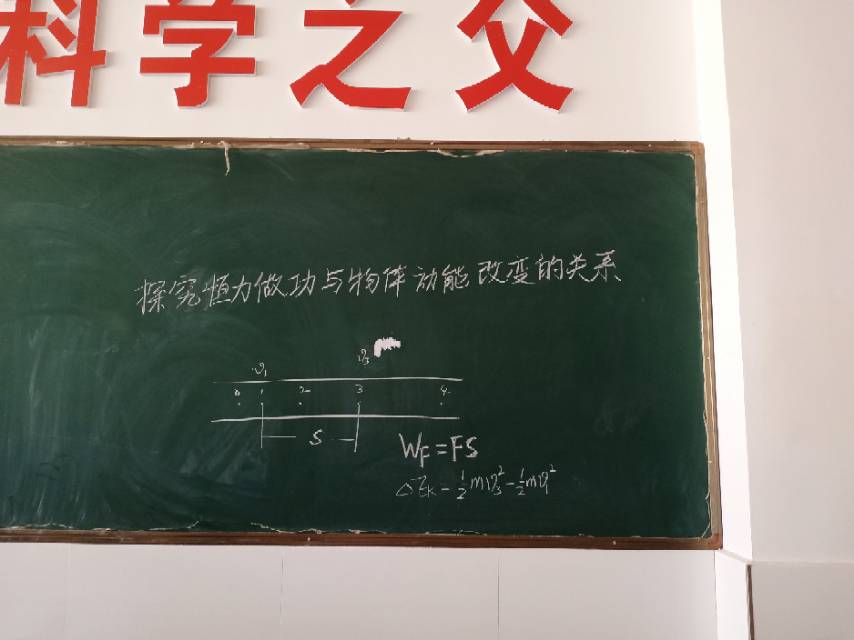 科学之父
探究恒力做功与物体动能改变的关系
v₁ v₃
0 1 2 3 4
S
W_F=FS
△E_K=½mv₃²-½mv₁²